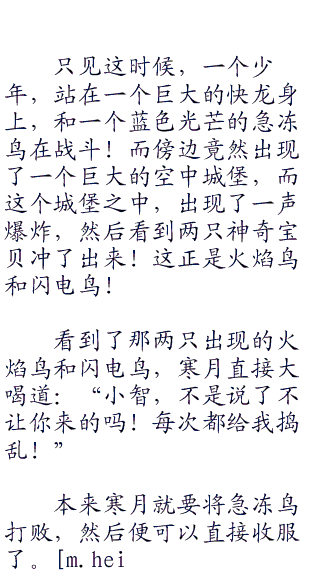 只见这时候，一个少
年，站在一个巨大的快龙身
上，和一个蓝色光芒的急冻
鸟在战斗！而傍边竟然出现
了一个巨大的空中城堡，而
这个城堡之中，出现了一声
爆炸，然后看到两只神奇宝
贝冲了出来！这正是火焰鸟
和闪电鸟！
看到了那两只出现的火
焰鸟和闪电鸟，寒月直接大
喝道：“小智，不是说了不
让你来的吗！每次都给我捣
乱！”
本来寒月就要将急冻鸟
打败，然后便可以直接收服
了。[m.hei